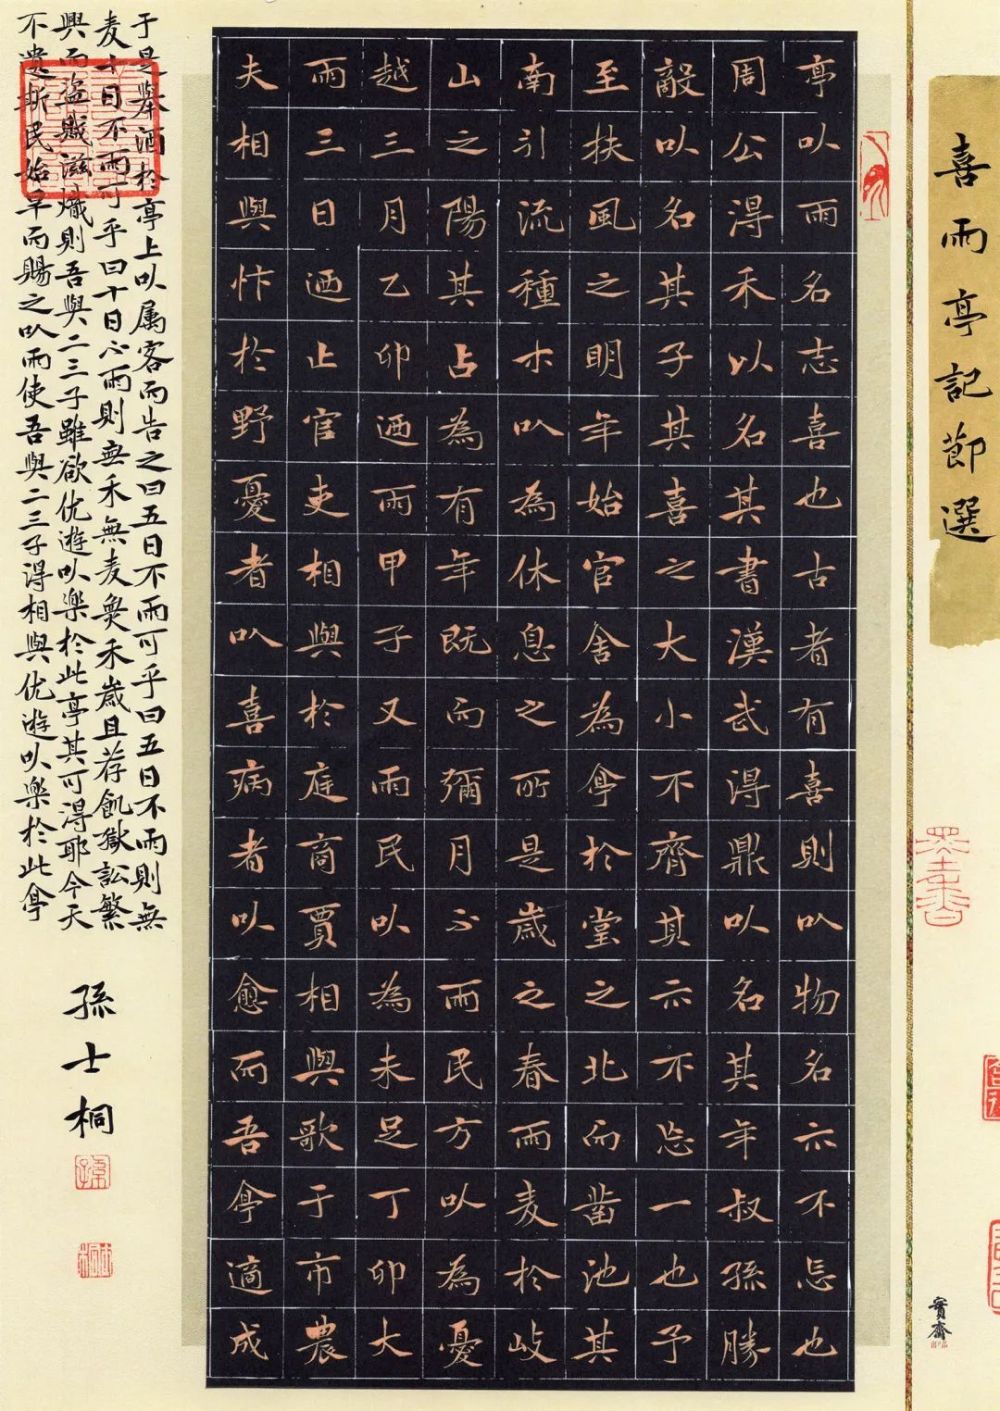 喜雨亭記節選
亭以雨名志喜也古者有喜則以物名示不忘也
周公得禾以名其書漢武得鼎以名其年叔孫勝
敵以名其子其喜之大小不齊其示不忘一也予
至扶風之明年始官舍為亭於堂之北而鑿池其
南引流種木以為休息之所是歲之春雨麦於岐
山之陽其占為有年既而彌月不雨民方以為憂
越三月乙卯迺雨甲子又雨民以為未足丁卯大
雨三日迺止官吏相與於庭商賈相與歌于市農
夫相與忭於野憂者以喜病者以愈而吾亭適成
于是舉酒於亭上以属客而告之曰五日不雨可乎曰五日不雨則無
麦十日不雨可乎曰十日不雨則無禾無麦無禾歲且荐飢獄訟繁
興而盗賊滋熾則吾與二三子雖欲优遊以樂於此亭其可得耶今天
不遗斯民始旱而賜之以雨使吾與二三子得相與优遊以樂於此亭
孫士桐